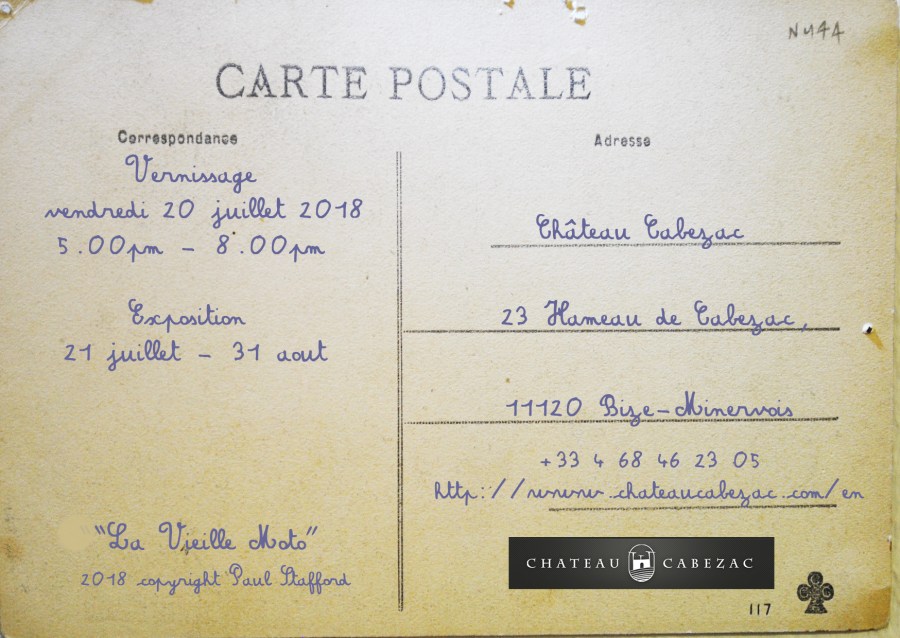 CARTE POSTALE
Correspondance
Vernissage
vendredi 20 juillet 2018
5.00pm - 8.00pm
Exposition
21 juillet - 31 aout
"La Vieille Moto"
2018 copyright Paul Stafford
Adresse
Château Cabezac
23 Hameau de Cabezac,
11120 Bize-Minervois
+33 4 68 46 23 05
http://www.chateaucabezac.com/en
CHATEAU CABEZAC
117